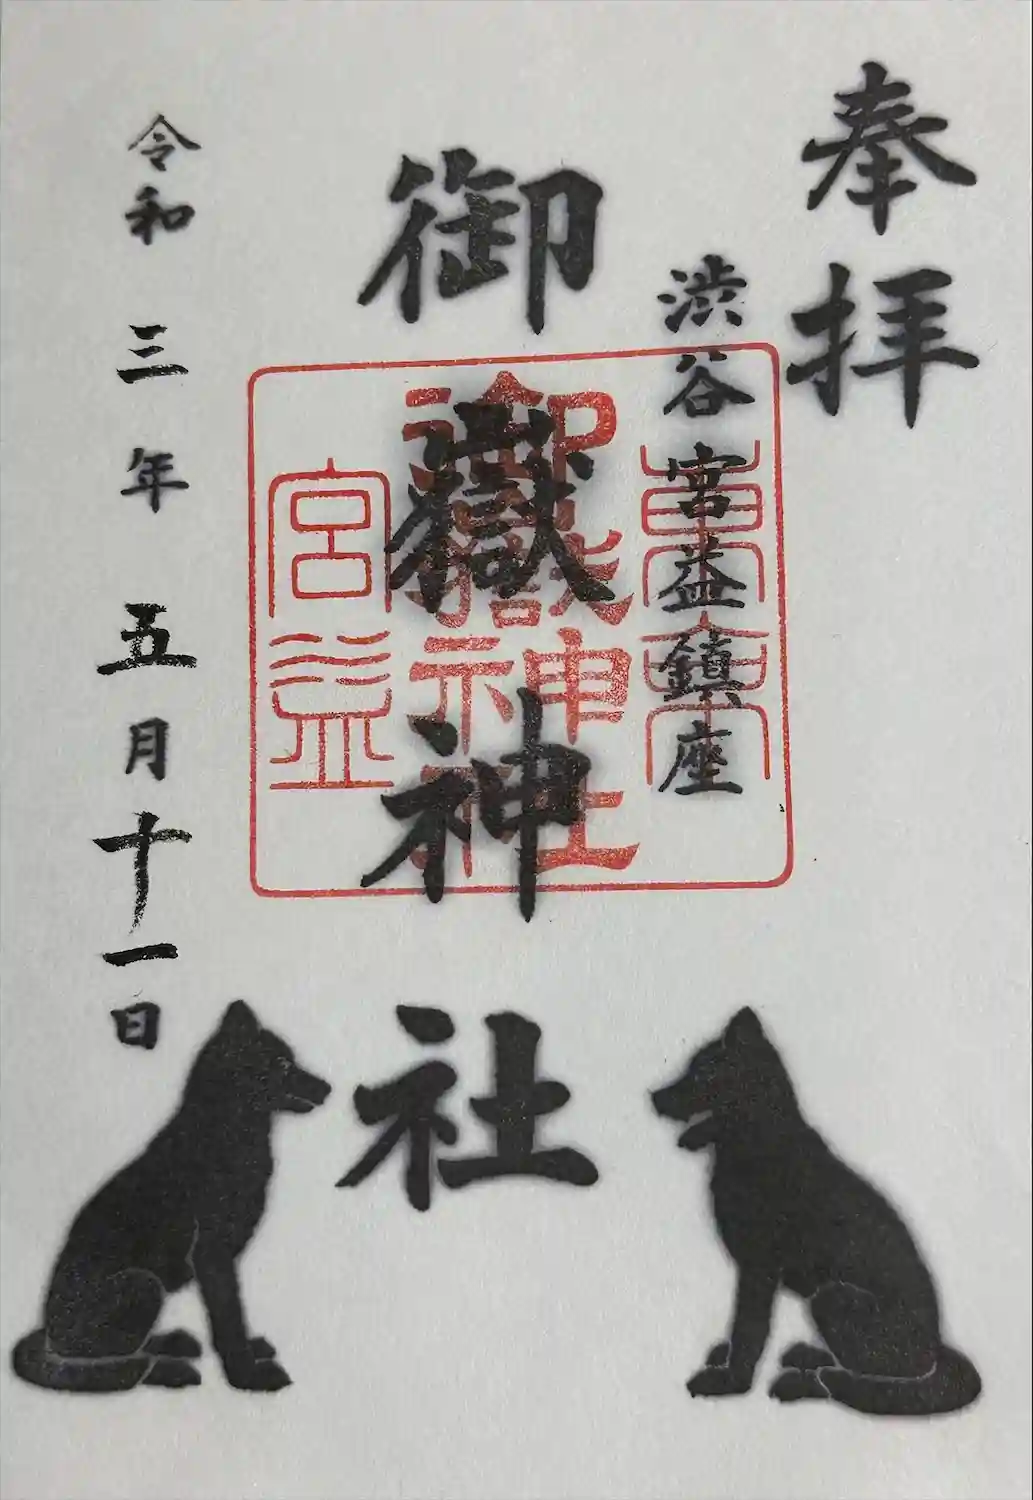 奉拝
渋谷宮益鎮座
御嶽神社
令和三年五月十一日
御嶽神社
宮益